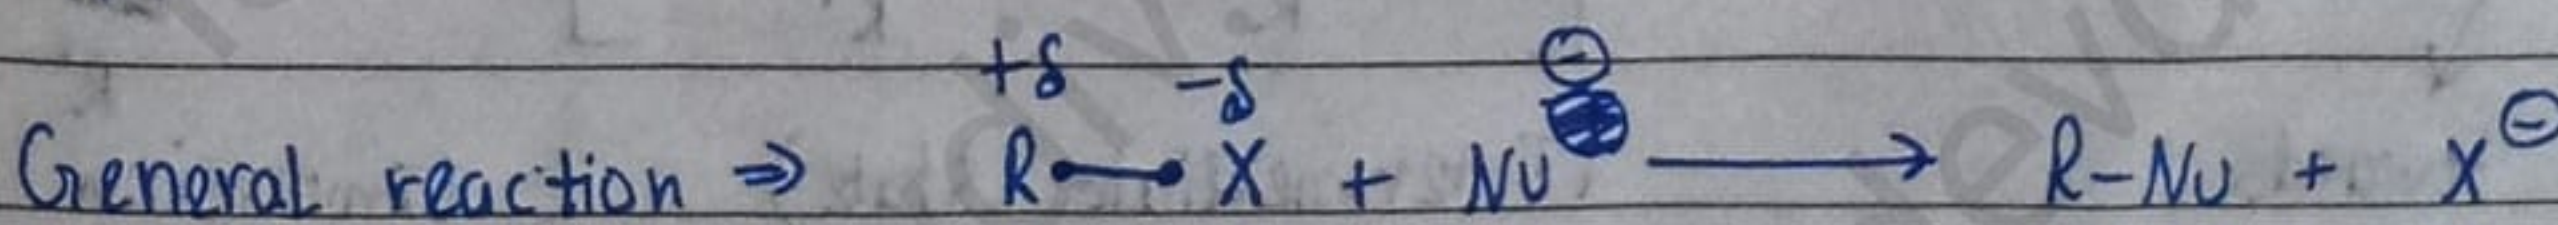 +δ -δ ⊖
General reaction ⇒ R—X + Nu ⟶ R-Nu + X⊖